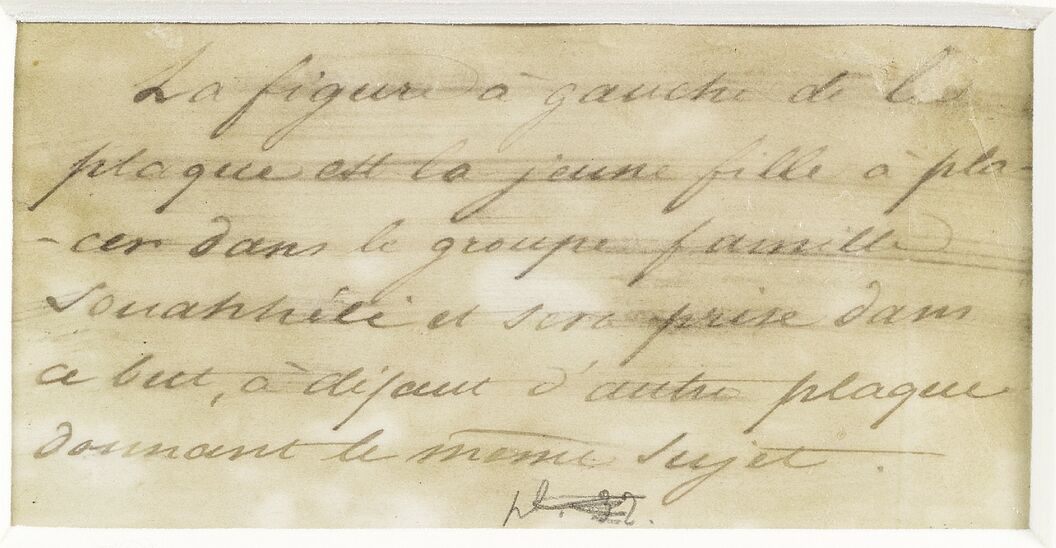 La figure à gauche de la
plaque est la jeune fille à pla-
-cer dans le groupe famille
Souahhéli et sera prise dans
ce but, à défaut d'autre plaque
donnant le même sujet.
pl.